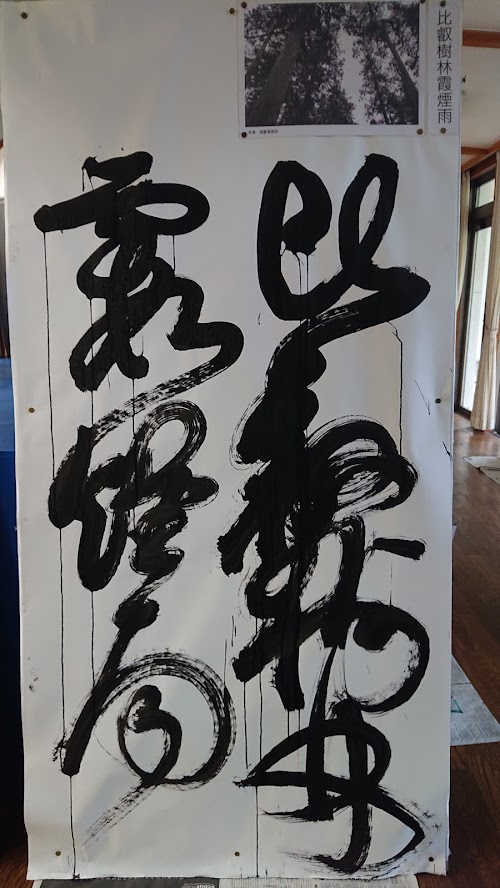 比叡樹林霞煙雨
比叡樹林
霞煙雨